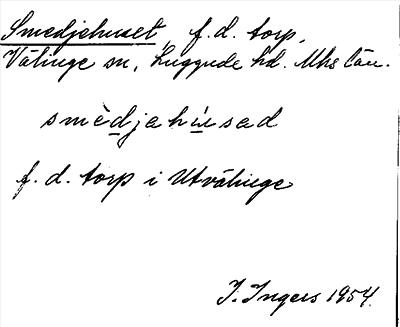 Smedjehuset, f. d. torp,
Välinge sn, Luggude hd. Mhs län.
smèdjahùsad
f. d. torp i Utvälinge
I. Ingers 1954.